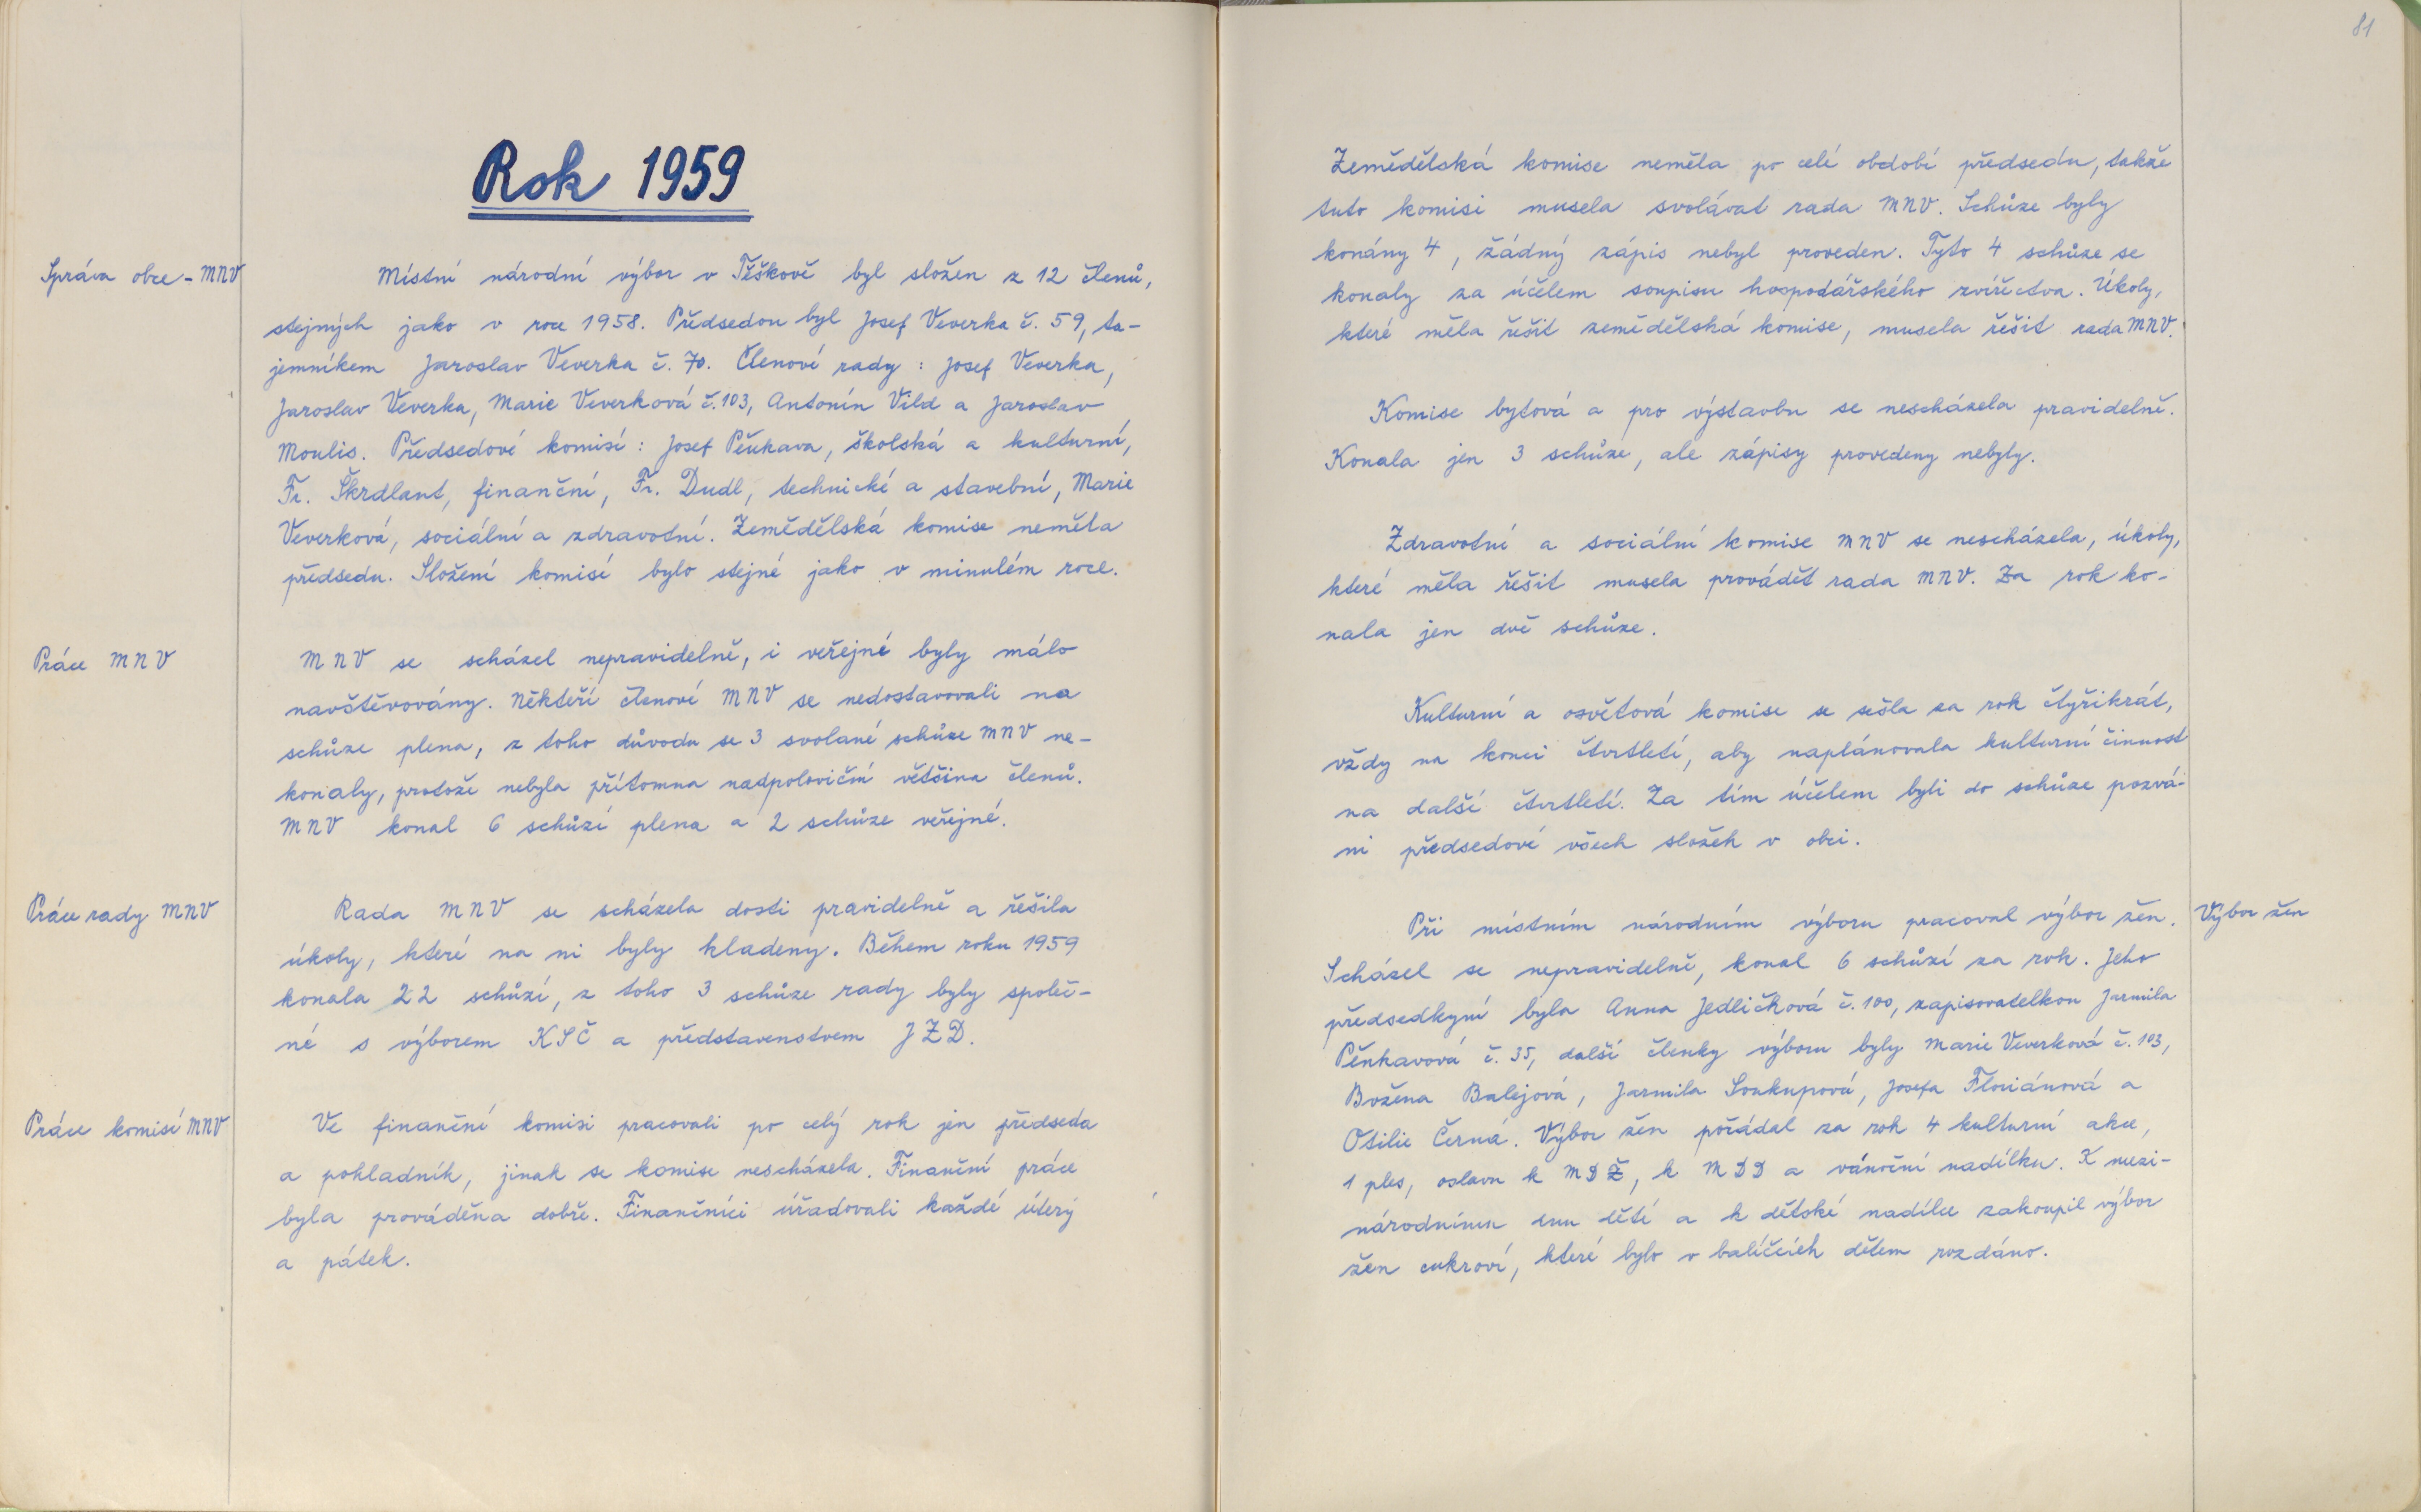 Rok 1959
Správa obce - MNV
Místní národní výbor v Těškově byl složen z 12 členů,
stejných jako v roce 1958. Předsedou byl Josef Veverka č. 59, ta-
jemníkem Jaroslav Veverka č. 70. Členové rady : Josef Veverka,
Jaroslav Veverka, Marie Veverková č. 103, Antonín Vild a Jaroslav
Moulis. Předsedové komisí : Josef Pěnkava, školská a kulturní,
Fr. Škrdlant, finanční, Fr. Dudl, technické a stavební, Marie
Veverková, sociální a zdravotní. Zemědělská komise neměla
předsedu. Složení komisí bylo stejné jako v minulém roce.
Práce MNV
MNV se scházel nepravidelně, i veřejné byly málo
navštěvovány. Někteří členové MNV se nedostavovali na
schůze plena, z toho důvodu se 3 svolané schůze MNV ne-
konaly, protože nebyla přítomna nadpoloviční většina členů.
MNV konal 6 schůzí plena a 2 schůze veřejné.
Práce rady MNV
Rada MNV se scházela dosti pravidelně a řešila
úkoly, které na ni byly kladeny. Během roku 1959
konala 22 schůzí, z toho 3 schůze rady byly společ-
né s výborem KSČ a představenstvem JZD.
Práce komisí MNV
Ve finanční komisi pracovali po celý rok jen předseda
a pokladník, jinak se komise nescházela. Finanční práce
byla prováděna dobře. Finančníci úřadovali každé úterý
a pátek.
81
Zemědělská komise neměla po celé období předsedu, takže
tuto komisi musela svolávat rada MNV. Schůze byly
konány 4, žádný zápis nebyl proveden. Tyto 4 schůze se
konaly za účelem soupisu hospodářského zvířectva. Úkoly,
které měla řešit zemědělská komise, musela řešit rada MNV.
Komise bytová a pro výstavbu se nescházela pravidelně.
Konala jen 3 schůze, ale zápisy provedeny nebyly.
Zdravotní a sociální komise MNV se nescházela, úkoly,
které měla řešit musela provádět rada MNV. Za rok ko-
nala jen dvě schůze.
Kulturní a osvětová komise se sešla za rok čtyřikrát,
vždy na konci čtvrtletí, aby naplánovala kulturní činnost
na další čtvrtletí. Za tím účelem byli do schůze pozvá-
ni předsedové všech složek v obci.
Výbor žen
Při místním národním výboru pracoval výbor žen.
Scházel se nepravidelně, konal 6 schůzí za rok. Jeho
předsedkyní byla Anna Jedličková č. 100, zapisovatelkou Jarmila
Pěnkavová č. 35, další členky výboru byly Marie Veverková č. 103,
Božena Balejová, Jarmila Soukupová, Josefa Floriánová a
Otilie Černá. Výbor žen pořádal za rok 4 kulturní akce,
1 ples, oslavu k MDŽ, k MDD a vánoční nadílku. K mezi-
národnímu dnu dětí a k dětské nadílce zakoupil výbor
žen cukroví, které bylo v balíčcích dětem rozdáno.